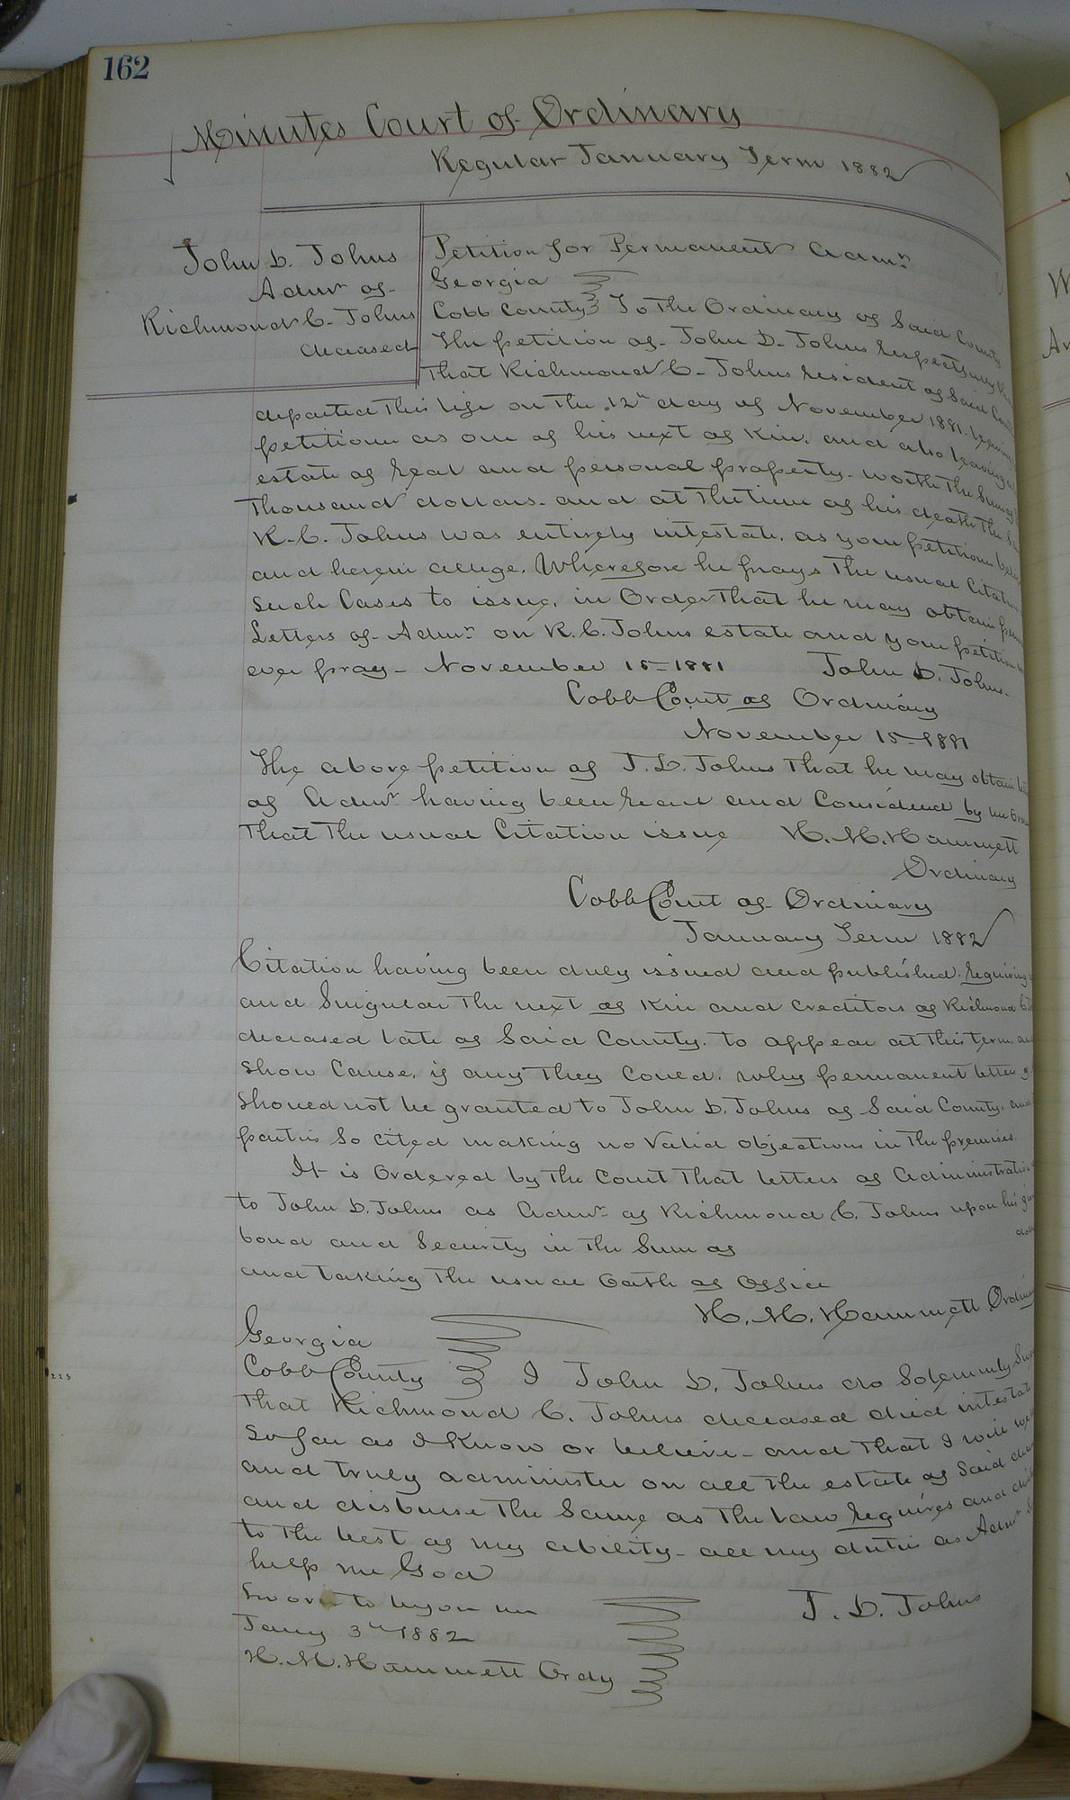 162
Minutes Court of Ordinary
Regular January Term 1882
John D. Johns
Admr of
Richmond C. Johns
deceased
Petition for Permanent Admn
Georgia
Cobb County To the Ordinary of Said County
The petition of John D. Johns respectfully
That Richmond C. Johns resident of Said
departed this life on the 12th day of November 1881. leaving
petitioner as one of his next of Kin. and also leaving
estate of real and personal property. worth the Sum of
Thousand dollars. and at the time of his death the
R. C. Johns was entirely intestate. as your petitioner
and herein allege. Wherefore he prays the usual Citation
Such Cases to issue, in Order That he may obtain
Letters of Admn on R. C. Johns estate and your petitioner
ever pray - November 15 - 1881 John D. Johns.
Cobb Court of Ordinary
November 15 - 1881
The above petition of J. D. Johns That he may obtain
of Admn having been read and Considered by me
That The usual Citation issue H. M. Hammett
Ordinary
Cobb Court of Ordinary
January Term 1882
Citation having been duly issued and published. requiring
and Singular The next of Kin and Creditors of Richmond C.
deceased late of Said County. to appear at this term
Show Cause. if any They Could. why permanent letters
Should not be granted to John D. Johns of Said County. and
parties So cited making no Valid objections in The premises.
It is Ordered by The Court That letters of Administration
to John D. Johns as Admr of Richmond C. Johns upon his
bond and Security in The Sum of
and taking The usual Oath of Office
H. M. Hammett
Georgia
Cobb County I John D. Johns do Solemnly
That Richmond C. Johns deceased died intestate
So far as I Know or believe - and That I will
and truly administer on all The estate of Said
and disburse The Same as The Law requires and
to The best of my ability - all my duties as Admr
help me God
Sworn to before me J. D. Johns
Jany 3rd 1882
H. M. Hammett Ordy